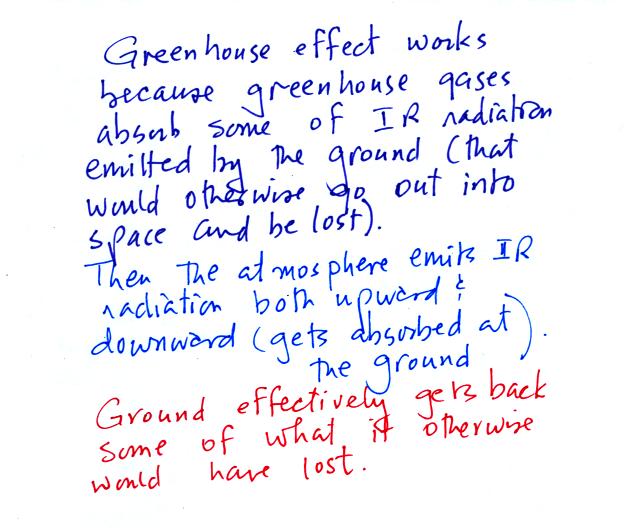 Greenhouse effect works
because greenhouse gases
absorb some of IR radiation
emitted by the ground (that
would otherwise go out into
space and be lost).
Then the atmosphere emits IR
radiation both upward &
downward (gets absorbed at
the ground).
Ground effectively gets back
some of what it otherwise
would have lost.